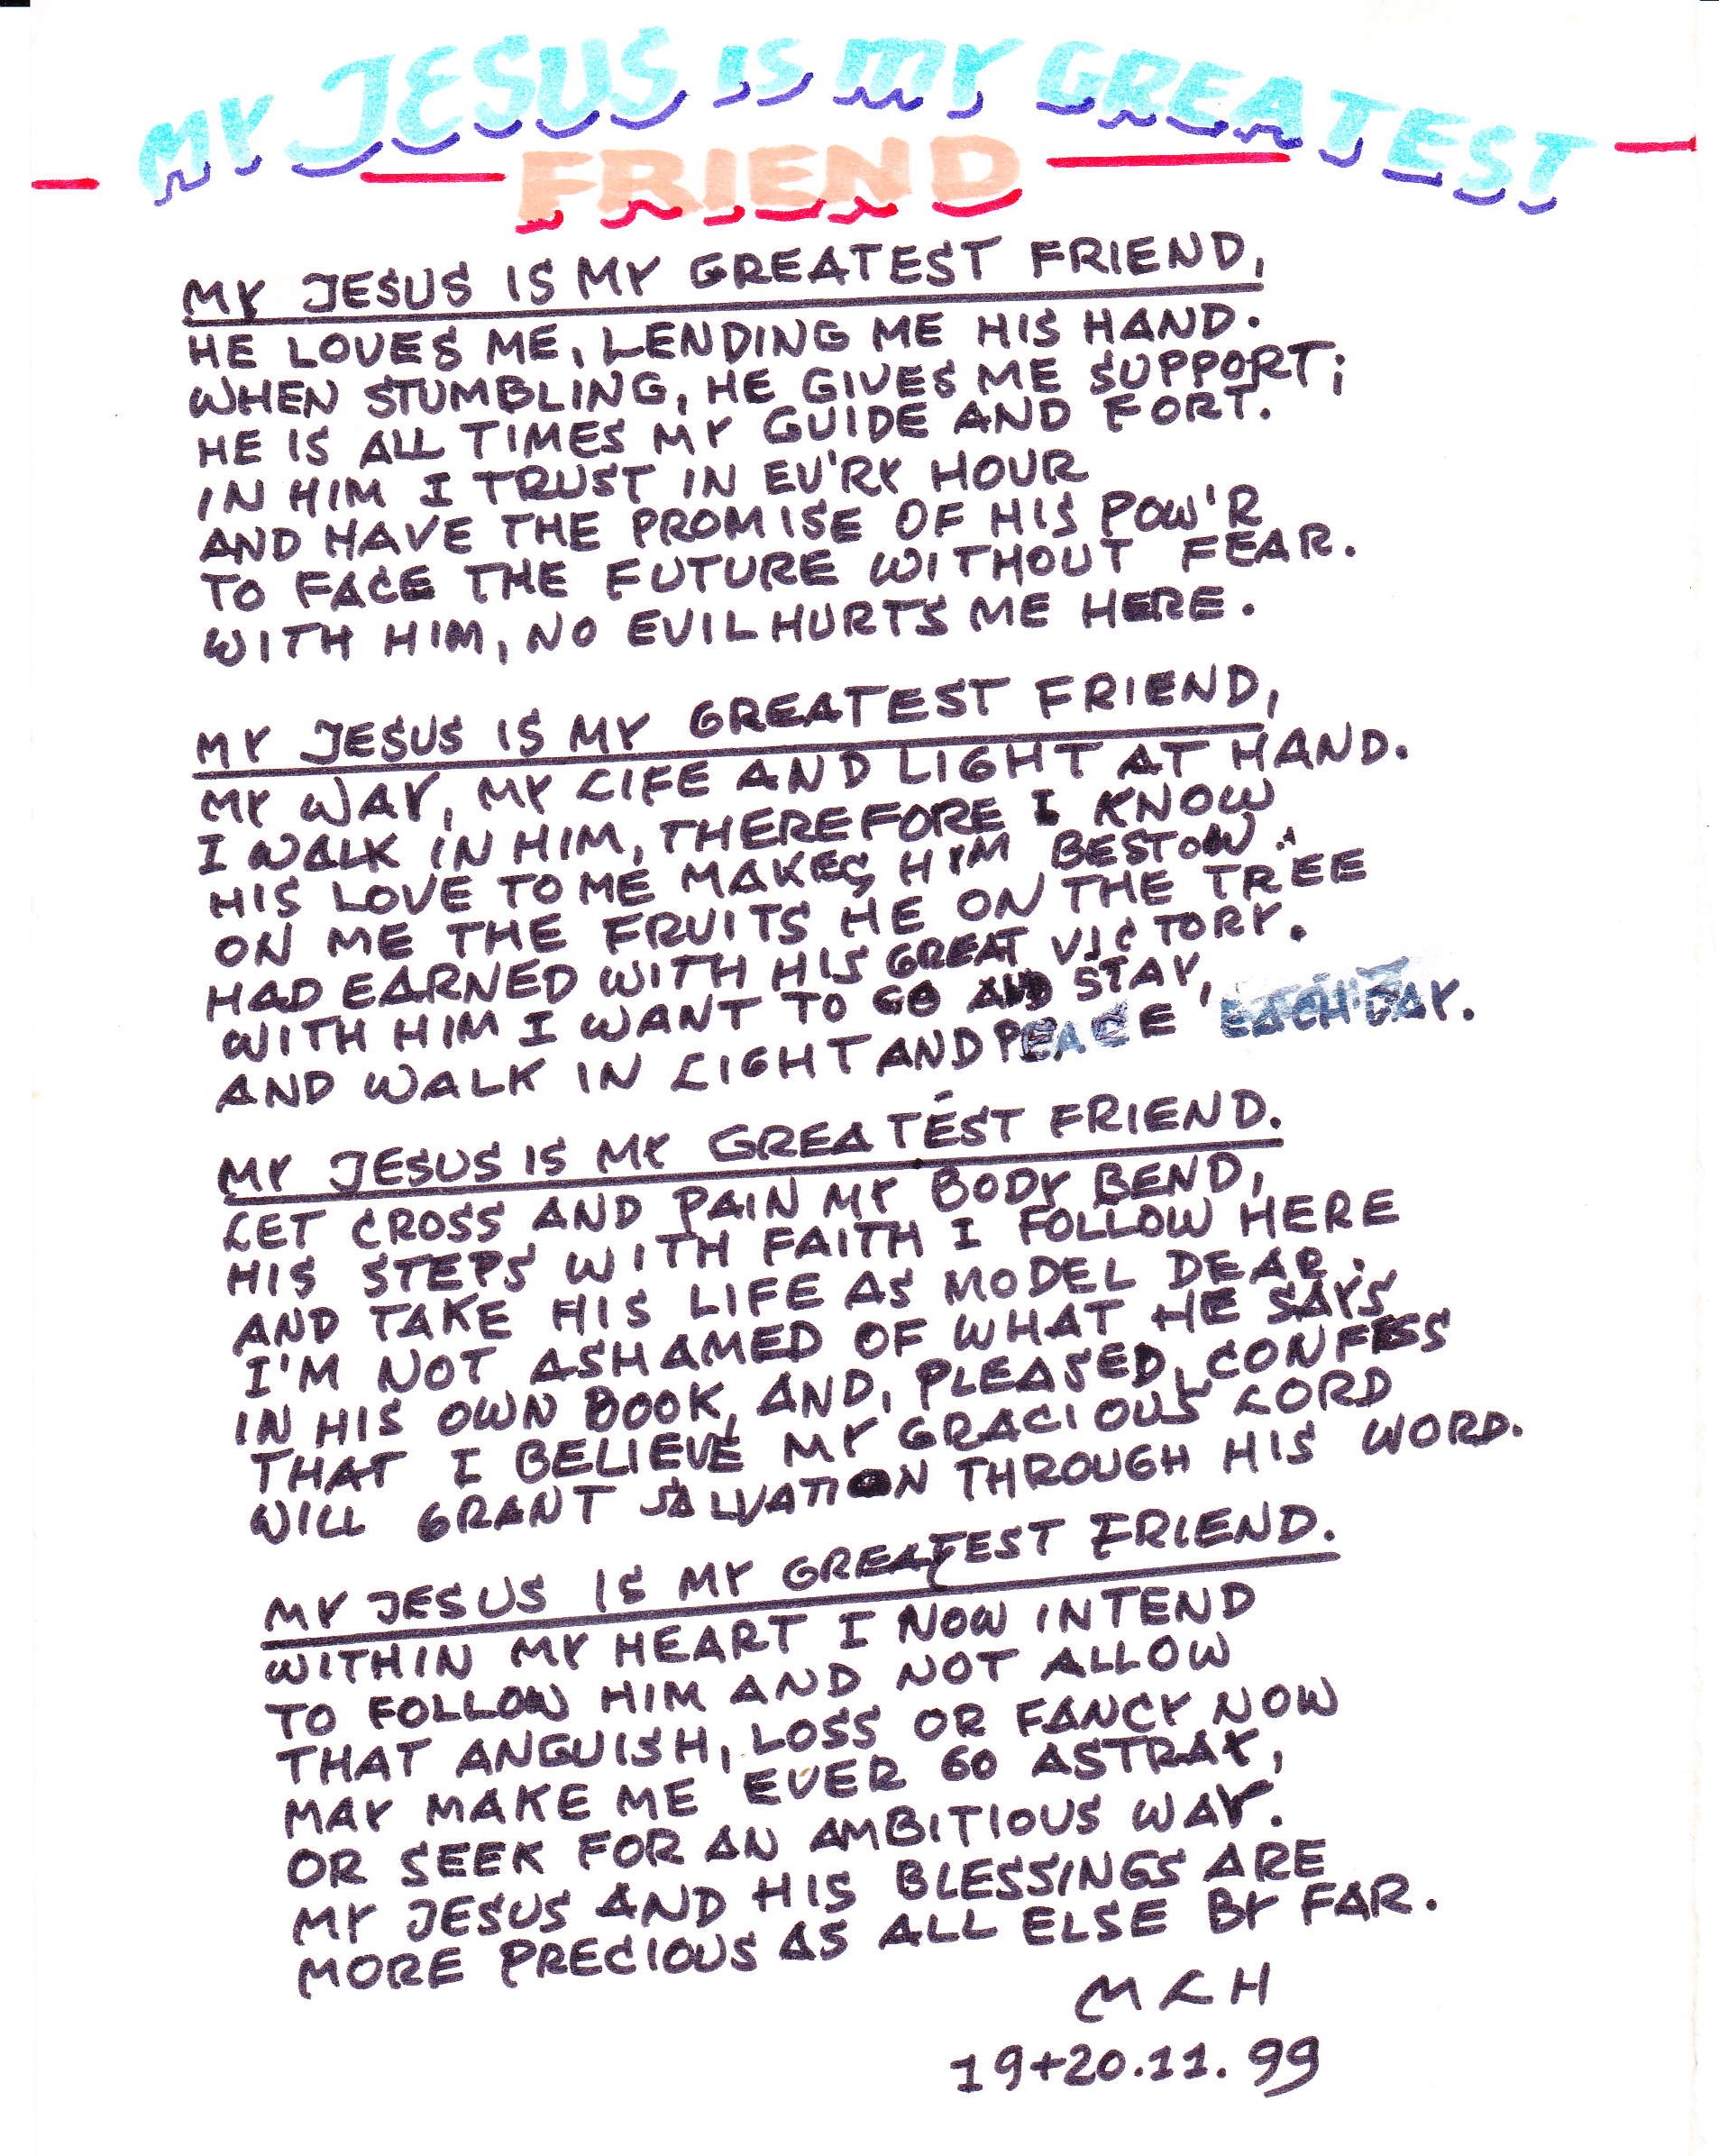 MY JESUS IS MY GREATEST
FRIEND
MY JESUS IS MY GREATEST FRIEND,
HE LOVES ME, LENDING ME HIS HAND.
WHEN STUMBLING, HE GIVES ME SUPPORT;
HE IS ALL TIMES MY GUIDE AND FORT.
IN HIM I TRUST IN EV'RY HOUR
AND HAVE THE PROMISE OF HIS POW'R
TO FACE THE FUTURE WITHOUT FEAR.
WITH HIM, NO EVIL HURTS ME HERE.
MY JESUS IS MY GREATEST FRIEND,
MY WAY, MY LIFE AND LIGHT AT HAND.
I WALK IN HIM, THEREFORE I KNOW
HIS LOVE TO ME MAKES HIM BESTOW
ON ME THE FRUITS HE ON THE TREE
HAD EARNED WITH HIS GREAT VICTORY.
WITH HIM I WANT TO GO AND STAY,
AND WALK IN LIGHT AND PEACE EACH DAY.
MY JESUS IS MY GREATEST FRIEND.
LET CROSS AND PAIN MY BODY BEND,
HIS STEPS WITH FAITH I FOLLOW HERE
AND TAKE HIS LIFE AS MODEL DEAR.
I'M NOT ASHAMED OF WHAT HE SAYS
IN HIS OWN BOOK, AND, PLEASED, CONFESS
THAT I BELIEVE MY GRACIOUS LORD
WILL GRANT SALVATION THROUGH HIS WORD.
MY JESUS IS MY GREATEST FRIEND.
WITHIN MY HEART I NOW INTEND
TO FOLLOW HIM AND NOT ALLOW
THAT ANGUISH, LOSS OR FANCY NOW
MAY MAKE ME EVER GO ASTRAY,
OR SEEK FOR AN AMBITIOUS WAY.
MY JESUS AND HIS BLESSINGS ARE
MORE PRECIOUS AS ALL ELSE BY FAR.
MLH
19+20.11.99